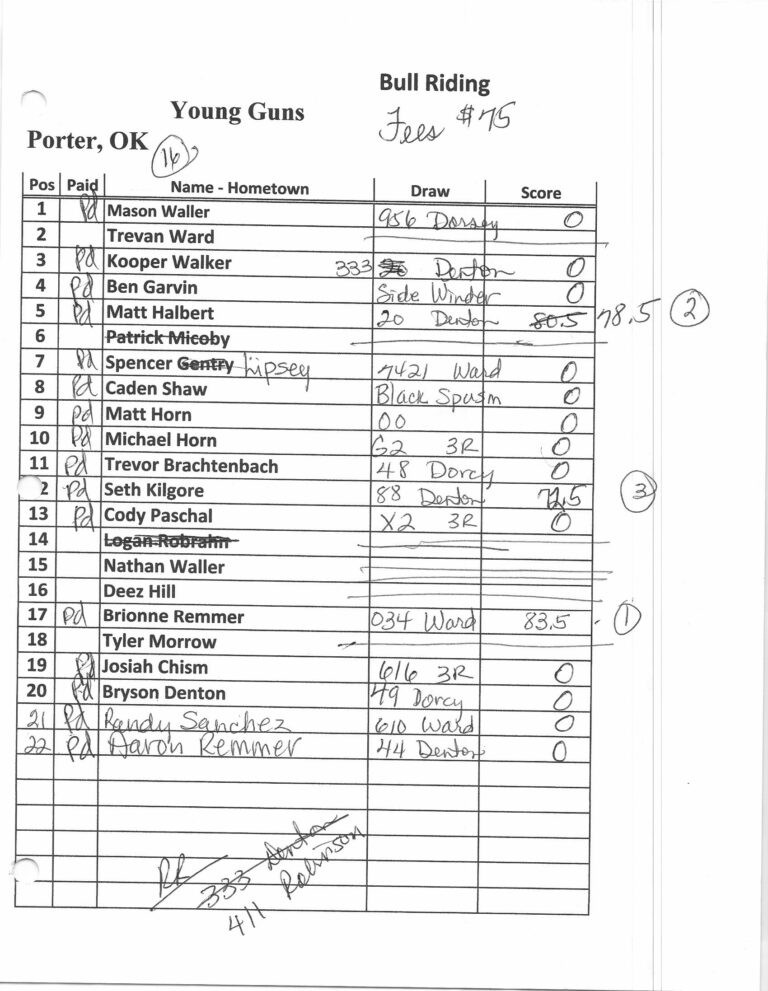 Bull Riding
Young Guns
Fees $75
Porter, OK
16
Pos Paid Name - Hometown Draw Score
1 Pd Mason Waller 956 Dorsey 0
2 Trevan Ward
3 Pd Kooper Walker 333 Denton 0
4 Pd Ben Garvin Side Winder 0
5 Pd Matt Halbert 20 Denton 80.5 78.5 2
6 Patrick Micoby
7 Pd Spencer Gentry Lipsey 7421 Ward 0
8 Pd Caden Shaw Black Spasm 0
9 Pd Matt Horn 00 0
10 Pd Michael Horn G2 3R 0
11 Pd Trevor Brachtenbach 48 Dorcy 0
2 Pd Seth Kilgore 88 Denton 72.5 3
13 Pd Cody Paschal X2 3R 0
14 Logan Robrahn
15 Nathan Waller
16 Deez Hill
17 Pd Brionne Remmer 034 Ward 83.5 1
18 Tyler Morrow
19 Pd Josiah Chism 616 3R 0
20 Pd Bryson Denton 49 Dorcy 0
21 Pd Randy Sanchez 610 Ward 0
22 Pd Aaron Remmer 44 Denton 0
RR 333 Denton
411 Robinson